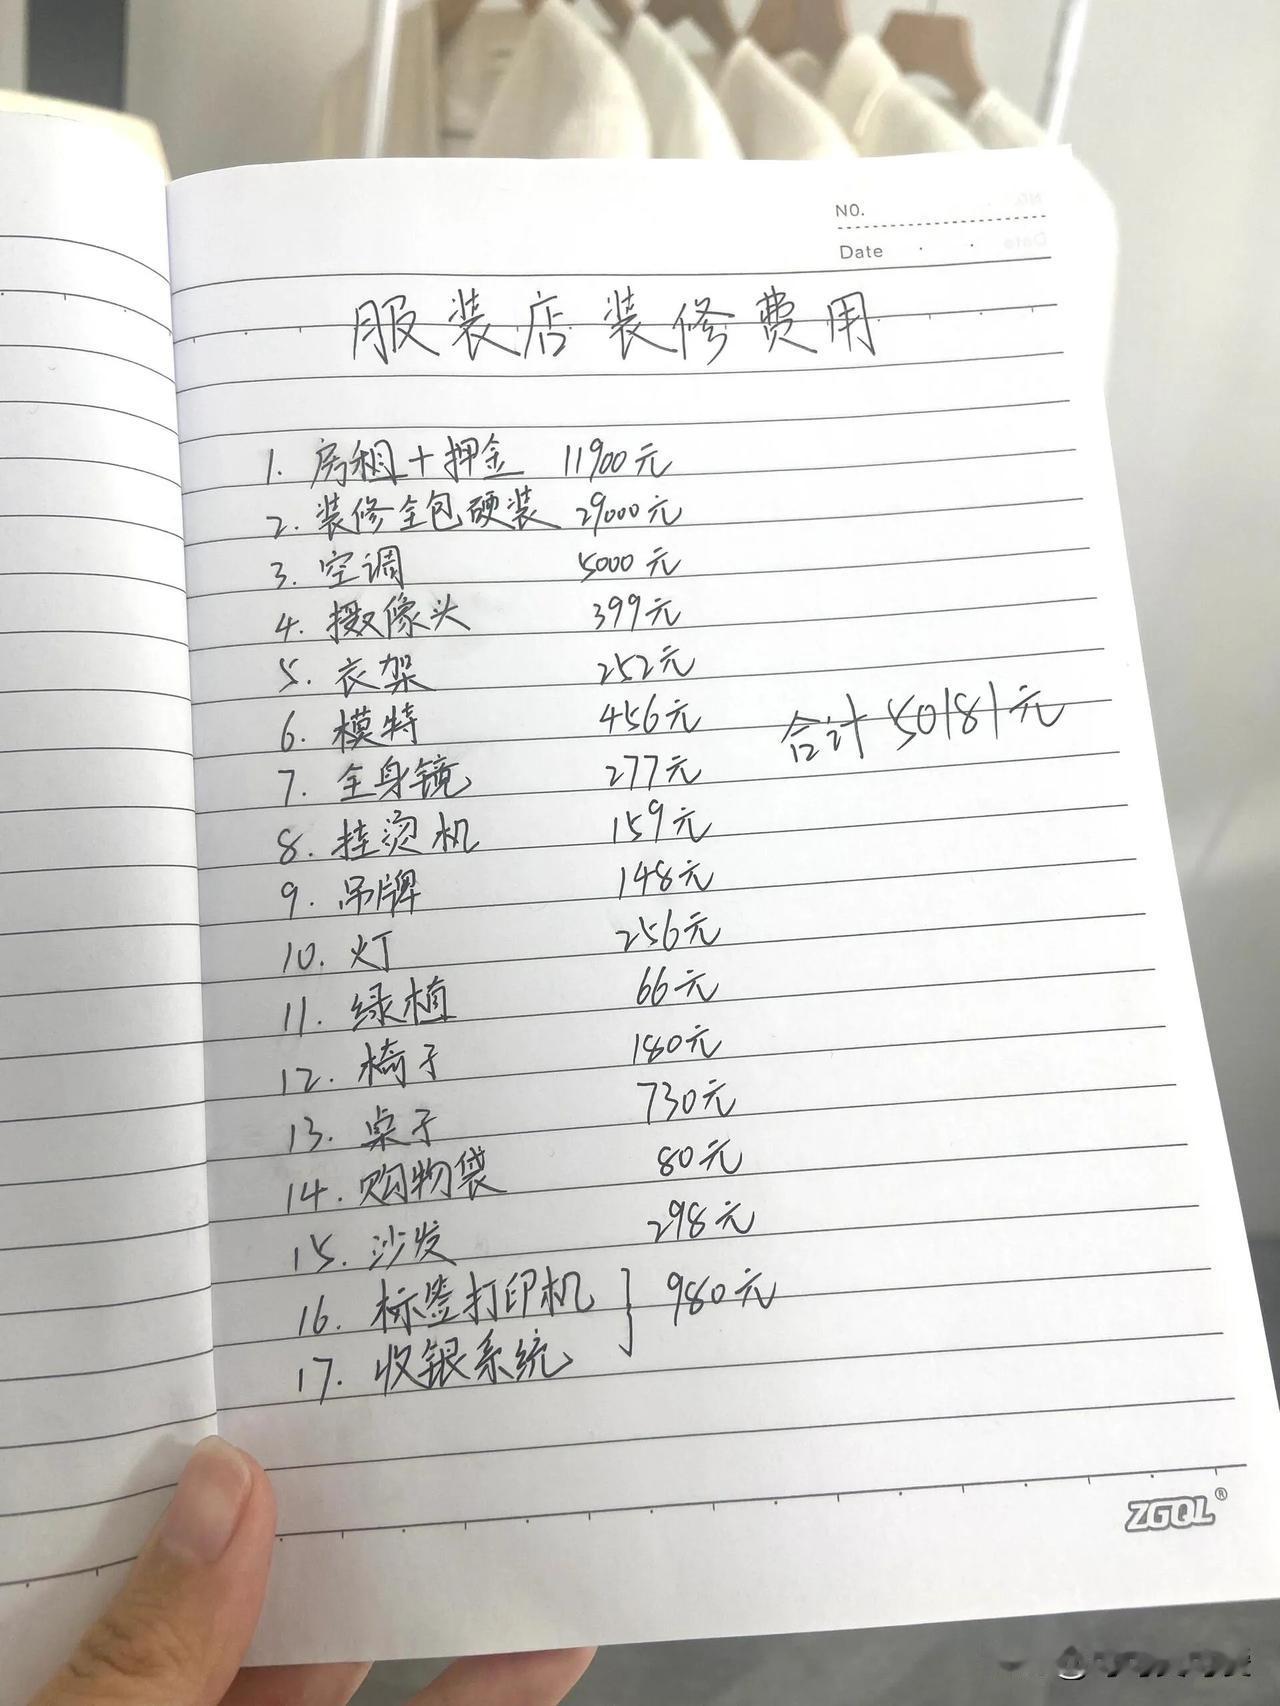 NO.
Date
服装店装修费用
1. 房租+押金 11900元
2. 装修全包硬装 29000元
3. 空调 5000元
4. 摄像头 399元
5. 衣架 252元
6. 模特 456元 合计50181元
7. 全身镜 277元
8. 挂烫机 159元
9. 吊牌 148元
10. 灯 256元
11. 绿植 66元
12. 椅子 180元
13. 桌子 730元
14. 购物袋 80元
15. 沙发 298元
16. 标签打印机 } 980元
17. 收银系统
ZGQL®